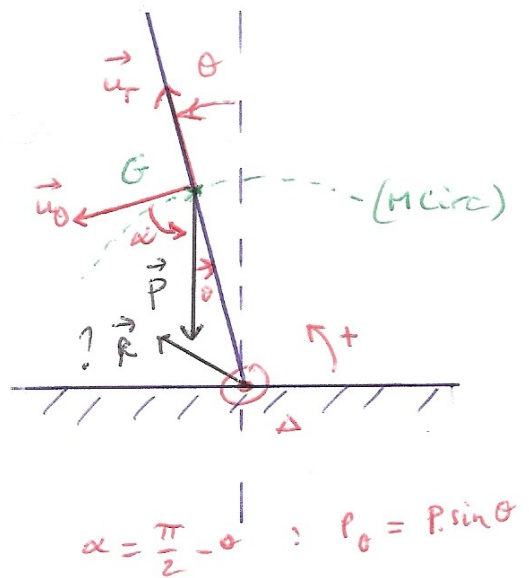 θ
u⃗r
G
u⃗θ
(M circ)
α
P⃗
θ
? R⃗
+
Δ
α = π/2 - θ : Pθ = P.sin θ